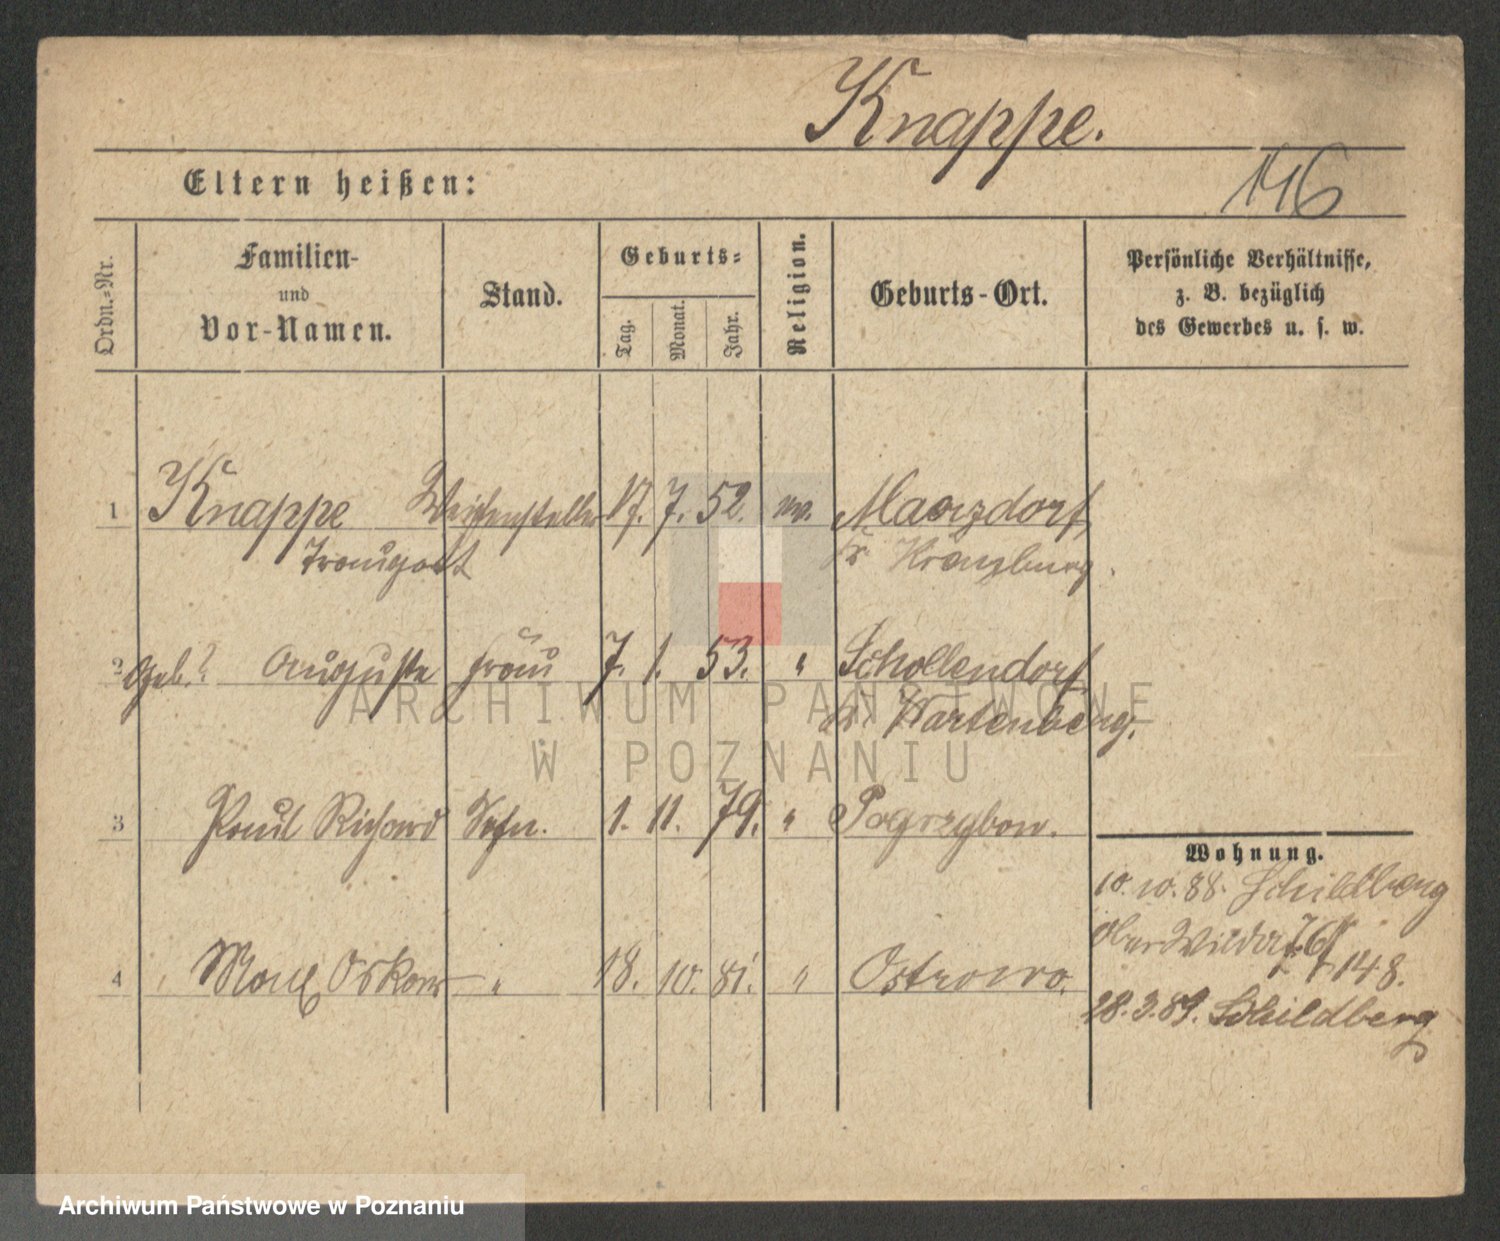 Knappe.
Eltern heißen:
146
Ordn.-Nr.
Familien-
und
Vor-Namen.
Stand.
Geburts-
Tag.
Monat.
Jahr.
Religion.
Geburts-Ort.
Persönliche Verhältnisse,
z. B. bezüglich
des Gewerbes u. s. w.
1 Knappe Weichensteller 17. 7. 52. ev. Marzdorf
Traugott Kr Kreuzburg.
2 geb.? Auguste Frau 7. 1. 53. " Schollendorf
Kr. Wartenberg.
ARCHIWUM PAŃSTWOWE
W POZNANIU
3 Paul Richard Sohn. 1. 11. 79. " Pogrzybow.
4 Max Oskar — " 18. 10. 81. " Ostrowo.
Wohnung.
10. 10. 88. Schildberg
Ober Wilda
148.
28. 3. 89. Schildberg
Archiwum Państwowe w Poznaniu